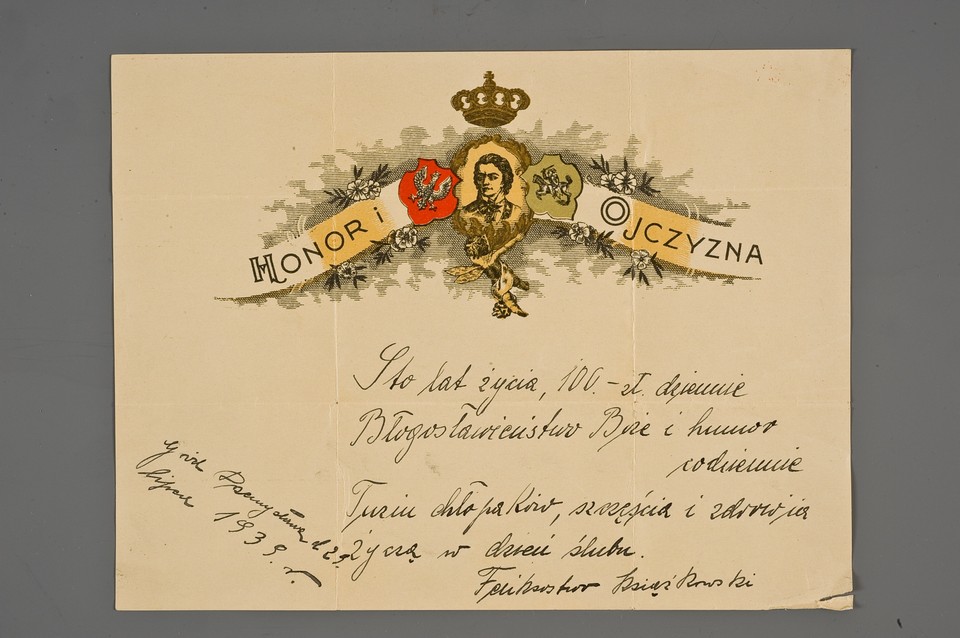 HONOR i OJCZYZNA
Sto lat życia, 100.- zł. dziennie
Błogosławieństwo Boże i humor
codziennie
Tuzin chłopaków, szczęścia i zdrowia
Życzą w dzień ślubu.
Feliksostwo Książkowski
d 29.
lipca 1939. r.